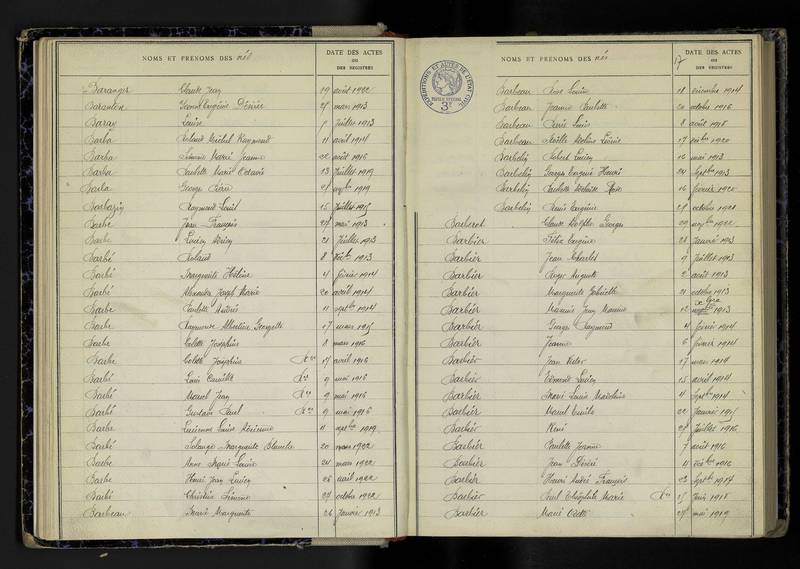 NOMS ET PRENOMS DES nés
DATE DES ACTES
OU
DES REGISTRES
Baranger Claude Jean 19 août 1922
Baranton Léonce Eugénie Désirée 27 mars 1913
Baray Louise 7 Juillet 1913
Barba Roland Michel Raymond 11 avril 1914
Barba Simone Marie Jeanne 22 août 1916
Barba Paulette Marie Octavie 13 Juillet 1919
Barba Georges Pierre sept 1919
Barbazin Raymond Louis 15 Juillet 1915
Barbe Jean François 27 mai 1913
Barbe Lucien 21 Juillet 1913
Barbé Roland 8 Déc 1913
Barbé Marguerite Hélène 4 février 1914
Barbé Alexandre Joseph Marie 20 avril 1914
Barbe Paulette Andrée 11 sept 1914
Barbe Raymonde Albertine Georgette 17 mars 1915
Barbe Colette Joséphine 8 mars 1916
Barbe Colette Joséphine 17 avril 1916
Barbé Louis Camille 9 mai 1916
Barbé Marcel Jean 9 mai 1916
Barbé Gustave Paul 9 mai 1916
Barbe Lucienne Louise 11 sept 1919
Barbé Solange Marguerite Blanche 20 mars 1922
Barbe Anne Marie Louise 24 mars 1922
Barbe Henri Jean Lucien 26 avril 1922
Barbé Christian Simone 27 octobre 1922
Barbeau Marie Marguerite 26 Janvier 1913
NOMS ET PRENOMS DES nés
17
DATE DES ACTES
OU
DES REGISTRES
EXPÉDITIONS ET ACTES DE L'ETAT CIVIL
PAPIER SPECIAL
3F
Barbeau Rose Louise 18 décembre 1914
Barbeau Jeanne Paulette 20 octobre 1916
Barbeau Denis Louis 8 août 1918
Barbeau 17 1920
Barbelin Robert Lucien 16 mai 1913
Barbelin Georges Eugène Henri 24 Septbre 1913
Barbelin Paulette Rose 16 février 1920
Barbelin Denis Eugène 27 octobre 1921
Barberet Claude Adolphe Georges 29 1922
Barbier Félix Eugène 28 Janvier 1913
Barbier Jean Charles 9 Juillet 1913
Barbier Roger Auguste 2 août 1913
Barbier Marguerite Gabrielle 21 octobre 1913
Barbier Jean 12 1913
Barbier Georges Raymond 4 février 1914
Barbier Jeanne 6 février 1914
Barbier Jean Victor 17 mars 1914
Barbier Edmond Lucien 15 avril 1914
Barbier Marie Louise Madeleine 4 Septbre 1914
Barbier Marcel Emile 22 Janvier 1915
Barbier René 27 Juillet 1916
Barbier Paulette Jeanne 7 août 1916
Barbier Jean Désiré 11 Décbre 1916
Barbier Henri André François 23 Septbre 1917
Barbier Paul Théophile Marie 25 Juin 1918
Barbier Marie 27 mai 1919